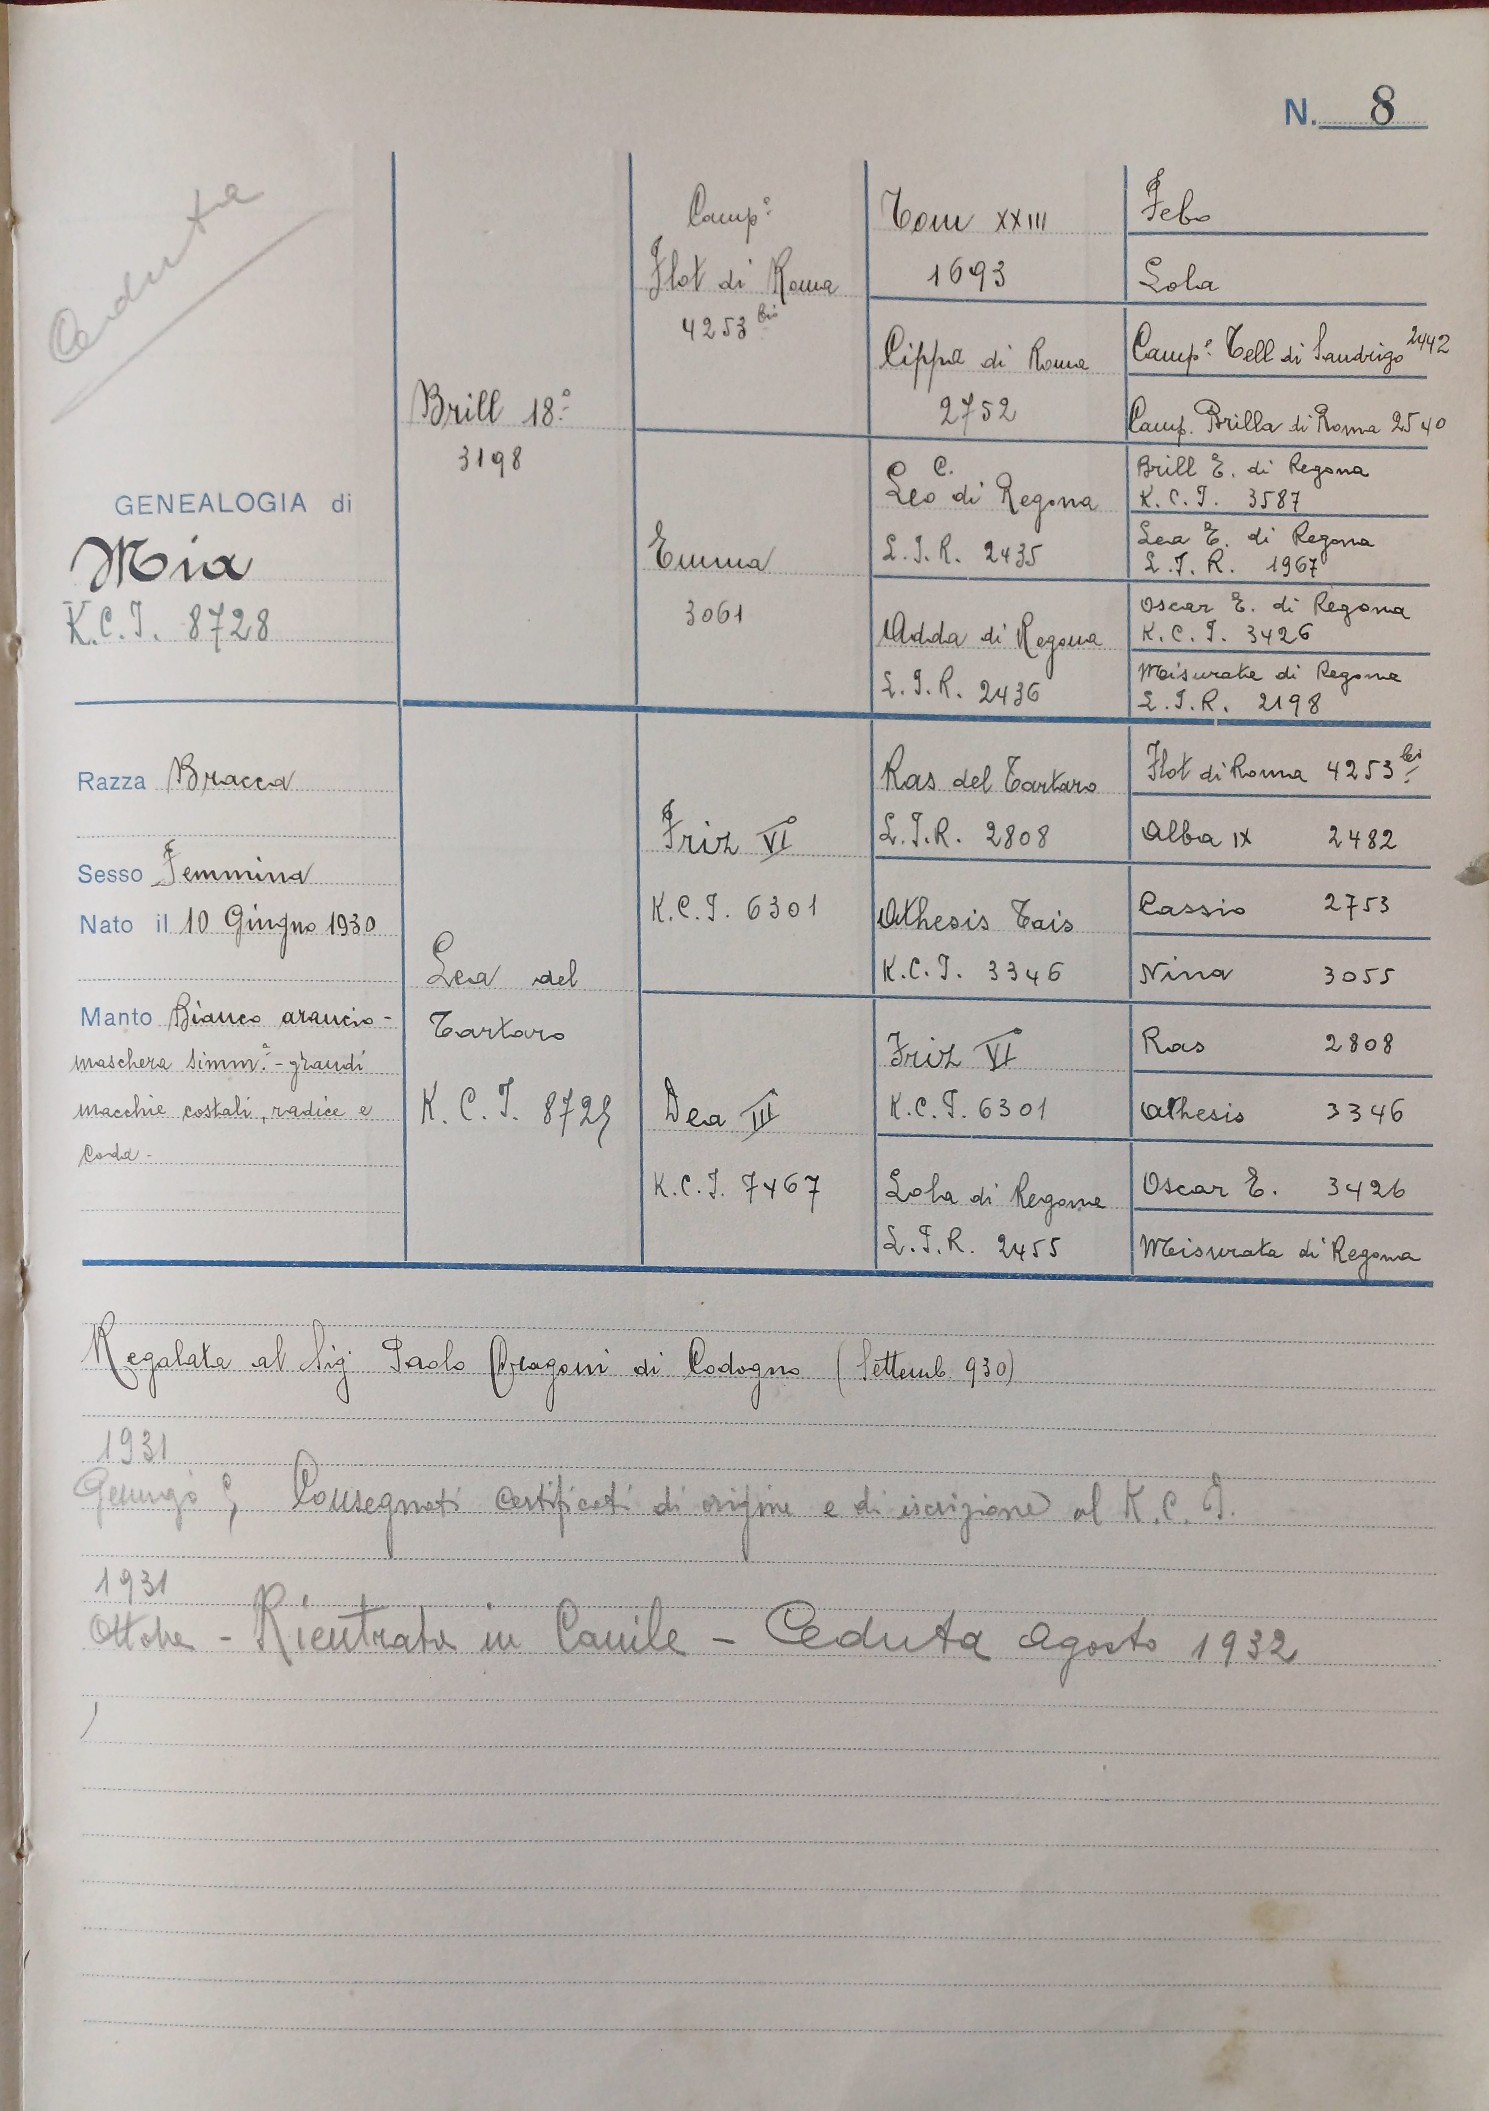 N. 8
Ceduta
GENEALOGIA di
Mia
K.C.I. 8728
Razza Bracca
Sesso Femmina
Nato il 10 Giugno 1930
Manto Bianco arancio -
maschera simm.ª - grandi
macchie costali, radice e
coda -
Brill 18º
3198
Lea del
Tartaro
K. C. I. 8725
Camp.e
Flot di Roma
4253 bis
Emma
3061
Friz VI
K.C.I. 6301
Dea III
K.C.I. 7467
Tom XXIII
1693
Cippa di Roma
2752
C.
Leo di Regona
L.I.R. 2435
Adda di Regona
L.I.R. 2436
Ras del Tartaro
L.I.R. 2808
Athesis Tais
K.C.I. 3346
Friz VI
K.C.I. 6301
Lola di Regona
L.I.R. 2455
Febo
Lola
Camp.e Tell di Sandrigo 2442
Camp. Brilla di Roma 2540
Brill E. di Regona
K.C.I. 3587
Lea E. di Regona
L.I.R. 1967
Oscar E. di Regona
K.C.I. 3426
Misurata di Regona
L.I.R. 2198
Flot di Roma 4253 bis
Alba IX 2482
Cassio 2753
Nina 3055
Ras 2808
Athesis 3346
Oscar E. 3426
Misurata di Regona
Regalata al Sig. Paolo Dragoni di Codogno (Settemb. 930)
1931
Consegnati certificati di origine e di iscrizione al K.C.I.
1931
Ottobre - Rientrata in Canile - Ceduta agosto 1932